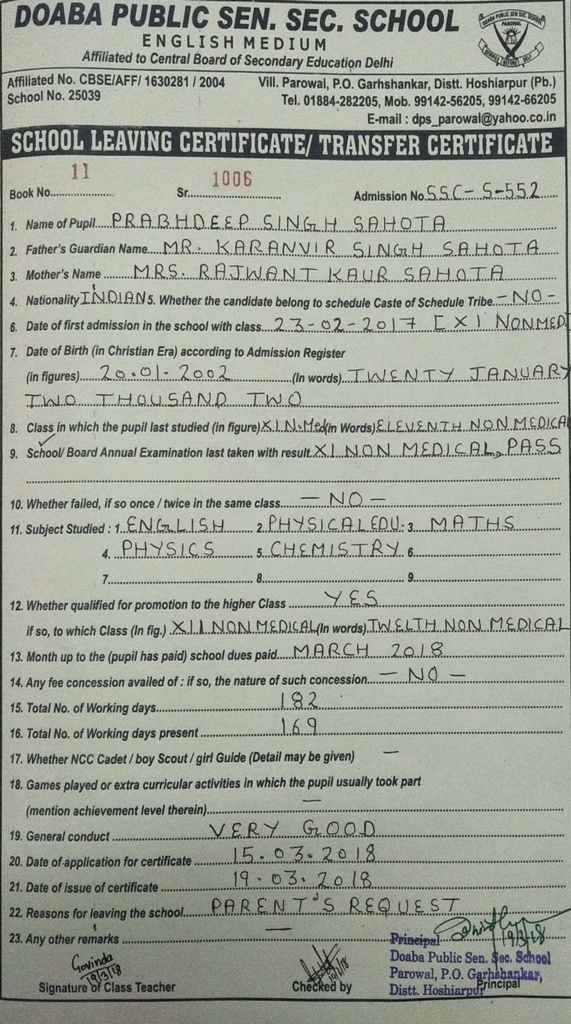 DOABA PUBLIC SEN. SEC. SCHOOL
ENGLISH MEDIUM
Affiliated to Central Board of Secondary Education Delhi
DOABA PUBLIC SEN SEC SCHOOL
PAROWAL
Affiliated No. CBSE/AFF/ 1630281 / 2004 Vill. Parowal, P.O. Garhshankar, Distt. Hoshiarpur (Pb.)
School No. 25039 Tel. 01884-282205, Mob. 99142-56205, 99142-66205
E-mail : dps_parowal@yahoo.co.in
SCHOOL LEAVING CERTIFICATE/ TRANSFER CERTIFICATE
Book No. 11 Sr. 1006 Admission No. SSC-S-552
1. Name of Pupil PRABHDEEP SINGH SAHOTA
2. Father's Guardian Name MR. KARANVIR SINGH SAHOTA
3. Mother's Name MRS. RAJWANT KAUR SAHOTA
4. Nationality INDIAN 5. Whether the candidate belong to schedule Caste of Schedule Tribe. -NO-
6. Date of first admission in the school with class 23-02-2017 [XI NONMED
7. Date of Birth (in Christian Era) according to Admission Register
(in figures) 20.01-2002 (In words) TWENTY JANUARY
TWO THOUSAND TWO
8. Class in which the pupil last studied (in figure) XI N.Med (in Words) ELEVENTH NON MEDICAL
9. School/ Board Annual Examination last taken with result XI NON MEDICAL, PASS
10. Whether failed, if so once / twice in the same class - NO -
11. Subject Studied : 1. ENGLISH 2. PHYSICAL EDU. 3. MATHS
4. PHYSICS 5. CHEMISTRY 6.
7. 8. 9.
12. Whether qualified for promotion to the higher Class YES
if so, to which Class (In fig.) XII NON MEDICAL (In words) TWELTH NON MEDICAL
13. Month up to the (pupil has paid) school dues paid MARCH 2018
14. Any fee concession availed of : if so, the nature of such concession - NO -
15. Total No. of Working days 182
16. Total No. of Working days present 169
17. Whether NCC Cadet / boy Scout / girl Guide (Detail may be given) -
18. Games played or extra curricular activities in which the pupil usually took part
(mention achievement level therein) -
19. General conduct VERY GOOD
20. Date of application for certificate 15.03.2018
21. Date of issue of certificate 19.03.2018
22. Reasons for leaving the school PARENT'S REQUEST
23. Any other remarks -
Principal 19/3/18
Doaba Public Sen. Sec. School
Parowal, P.O. Garhshankar,
Distt. Hoshiarpur
Govinda
19/3/18
Signature of Class Teacher Checked by Principal